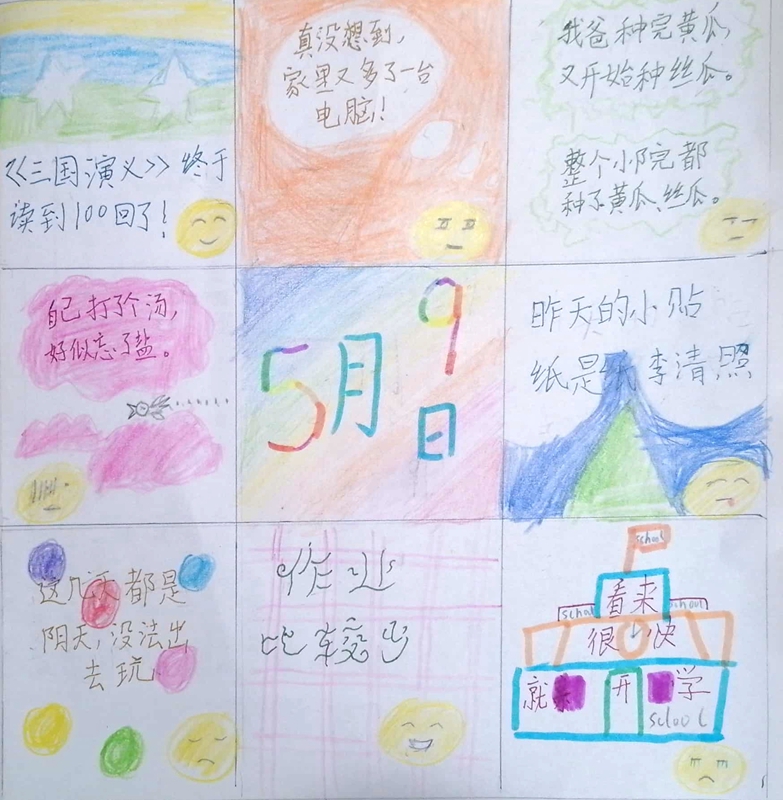 《三国演义》终于
读到100回了!
真没想到,
家里又多了一台
电脑!
我爸种完黄瓜,
又开始种丝瓜。
整个小院都
种了黄瓜、丝瓜。
自己打了个汤,
好似忘了盐。
5月9日
昨天的小贴
纸是 李清照
这几天都是
阴天,没法出
去玩
作业
比较少
school
school
school
看来
很快
就 开 学
school